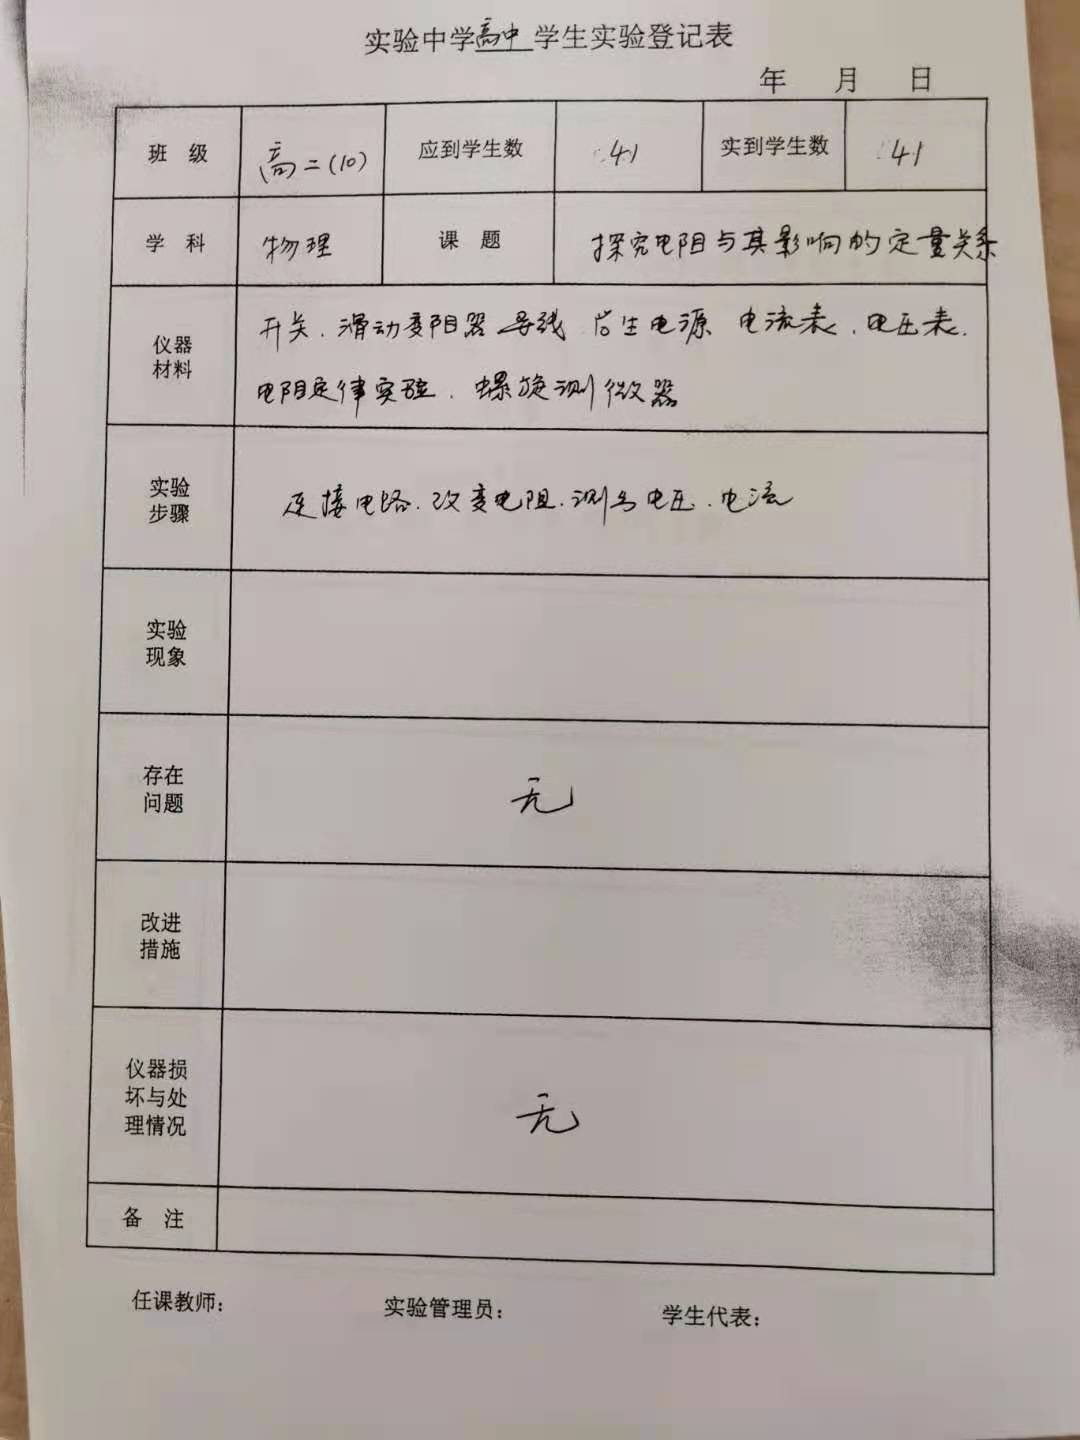 实验中学高中学生实验登记表
年 月 日
班 级 高二(10) 应到学生数 41 实到学生数 41
学 科 物理 课 题 探究电阻与其影响的定量关系
仪器材料 开关.滑动变阻器 导线 学生电源 电流表.电压表.
电阻定律实验.螺旋测微器
实验步骤 连接电路.改变电阻.测与电压.电流
实验现象
存在问题 无
改进措施
仪器损坏与处理情况 无
备 注
任课教师: 实验管理员: 学生代表: